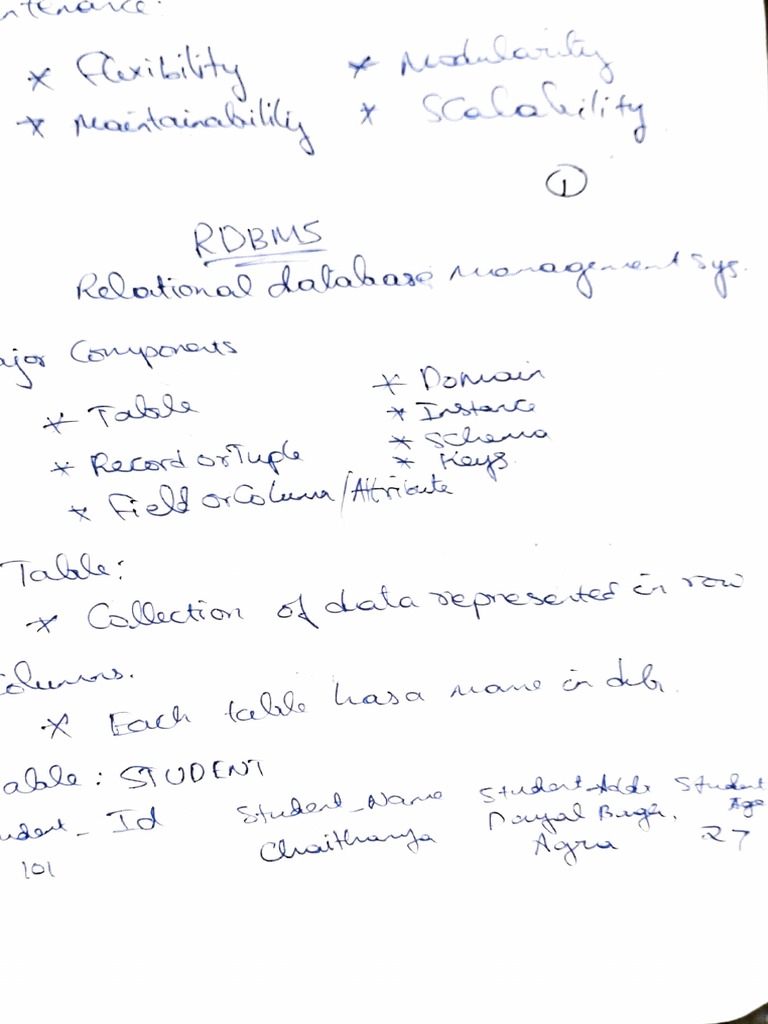 ntenance:
* Flexibility * Modularity
* Maintainability * Scalability
1
RDBMS
Relational database management sys.
ajor Components
* Table * Domain
* Record or Tuple * Instance
* Field or Column/Attribute * Schema
* Keys
Table:
* Collection of data represented in row
columns.
* Each table has a name in db.
able: STUDENT
udent_Id Student_Name Student_Addr Student Age
101 Chaithanya Dayal Bagh, Agra 27